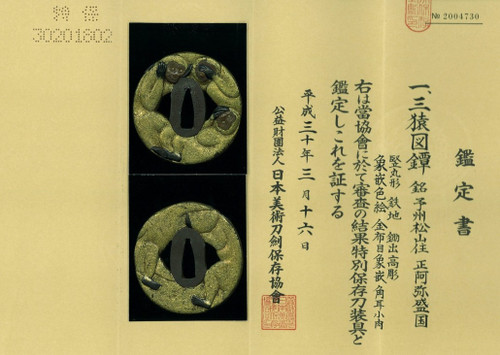 № 2004730
鑑定書
一、三猿図鐔 銘 予州松山住 正阿弥盛国
竪丸形 鉄地 鋤出高彫
象嵌色絵 金布目象嵌 角耳小肉
右は當協會に於て審査の結果特別保存刀装具と
鑑定しこれを証する
平成三十年三月十六日
公益財團法人 日本美術刀劍保存協會
30201802